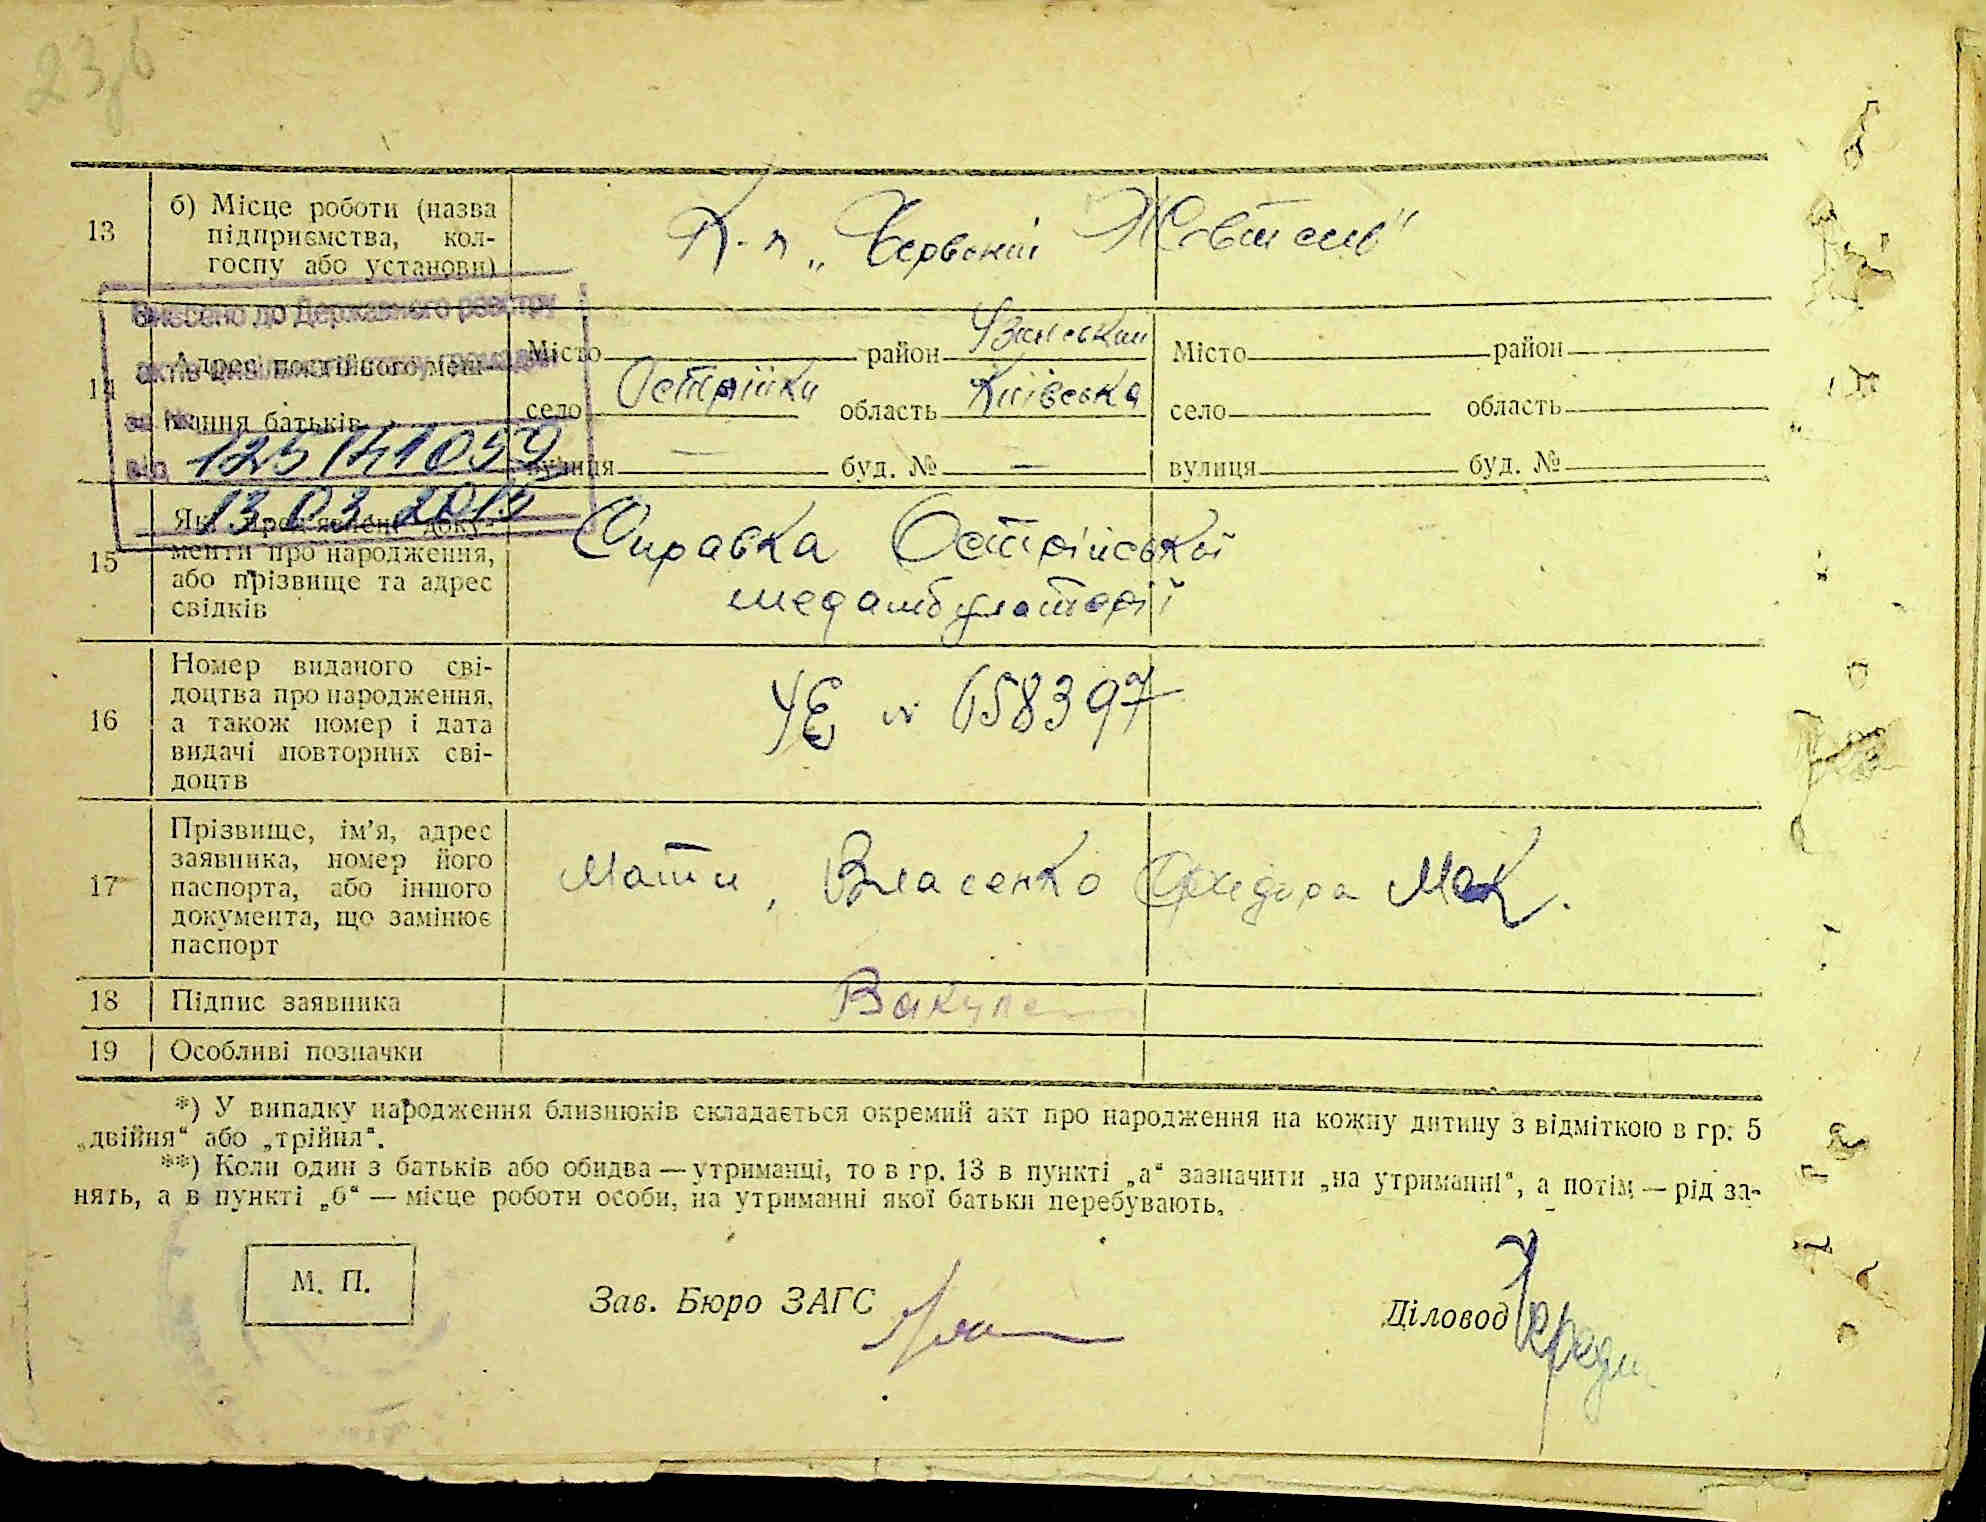 13
б) Місце роботи (назва
підприємства, кол-
госпу або установи)
К-п „Червоний Жовтень"
Внесено до Державного реєстру
актів цивільного стану громадян
за №
125141059
від
13 03 2015
14
Адрес постійного меш-
кання батьків
Місто район Узинський
село Острійки область Київська
вулиця — буд. № —
Місто район
село область
вулиця буд. №
15
Які пред'явлені доку-
менти про народження,
або прізвище та адрес
свідків
Справка Острійської
медамбулаторії
16
Номер виданого сві-
доцтва про народження,
а також номер і дата
видачі повторних сві-
доцтв
УЕ № 658397
17
Прізвище, ім'я, адрес
заявника, номер його
паспорта, або іншого
документа, що замінює
паспорт
Мати, Власенко Мак.
18
Підпис заявника
19
Особливі позначки
*) У випадку народження близнюків складається окремий акт про народження на кожну дитину з відміткою в гр. 5
„двійня" або „трійня".
**) Коли один з батьків або обидва — утриманці, то в гр. 13 в пункті „а" зазначити „на утриманні", а потім — рід за-
нять, а в пункті „б" — місце роботи особи, на утриманні якої батьки перебувають.
М. П.
Зав. Бюро ЗАГС
Діловод